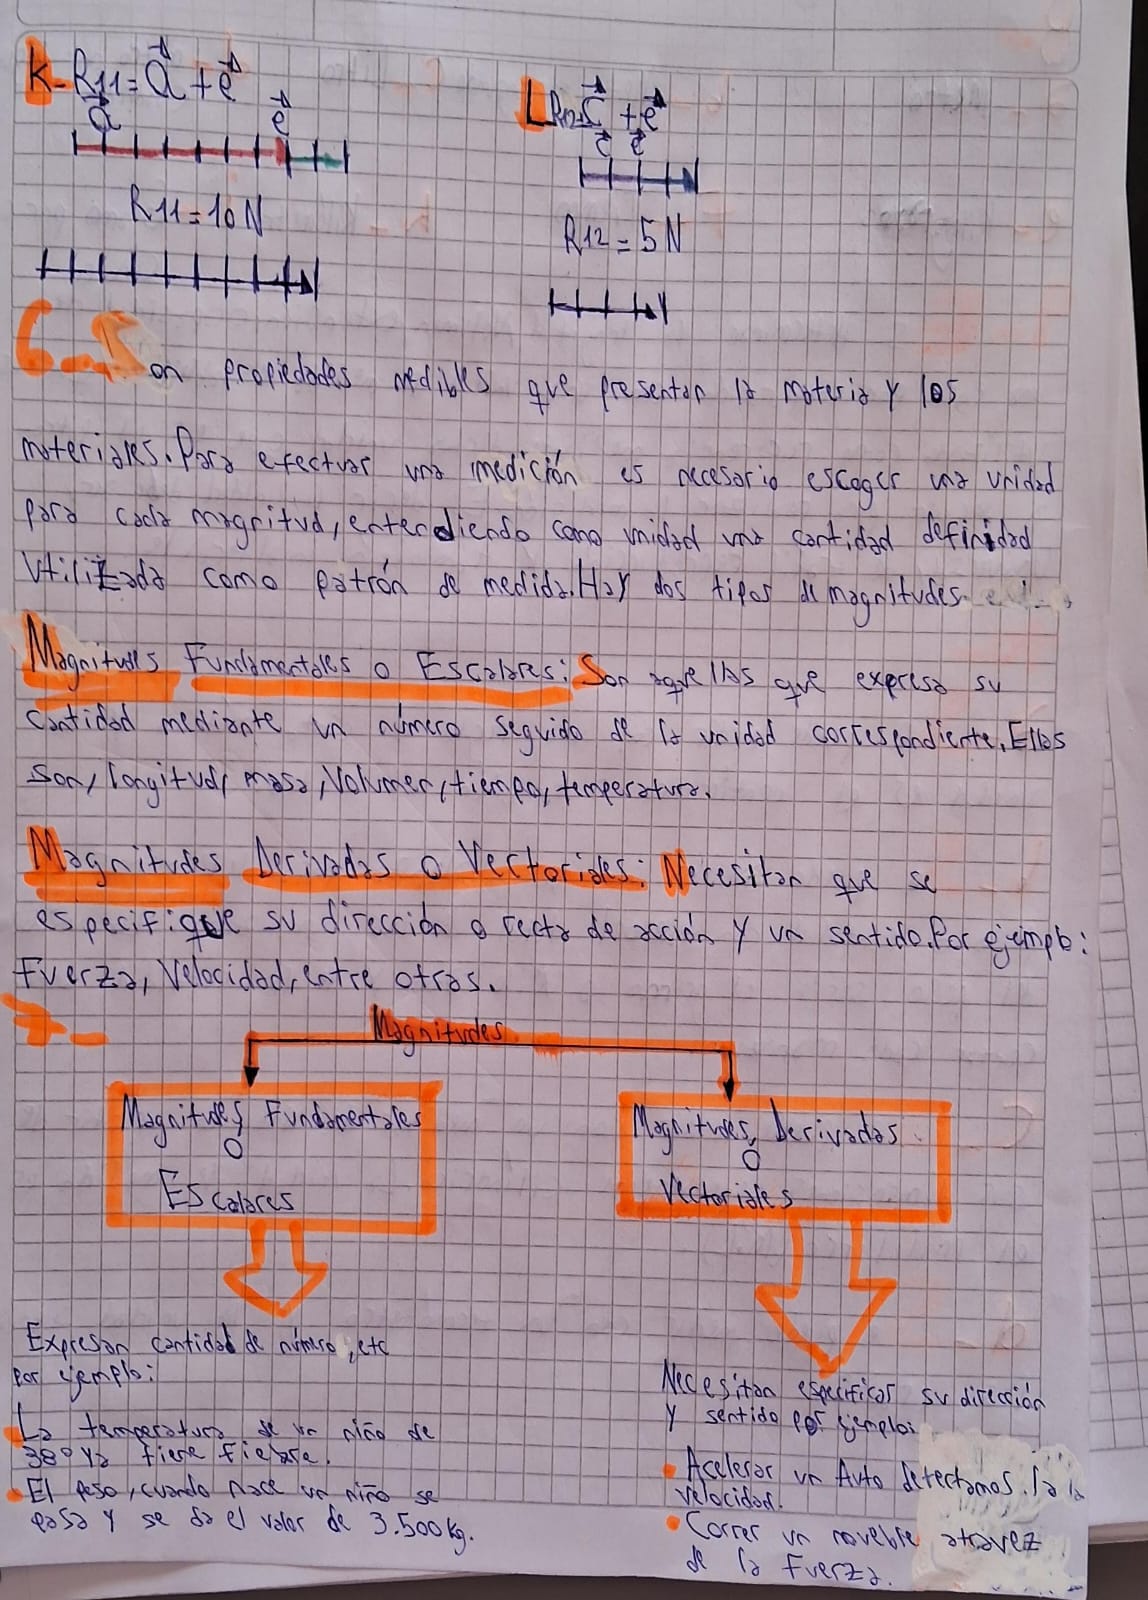 K- R11 = a + e
a e
R11 = 10 N
L R12 = c + e
c e
R12 = 5 N
6- Son propiedades medibles que presentan la materia y los
materiales. Para efectuar una medición es necesario escoger una unidad
para cada magnitud, entendiendo como unidad una cantidad definidad
Utilizada como patrón de medida. Hay dos tipos de magnitudes
Magnitudes Fundamentales o Escalares: Son aquellas que expresa su
cantidad mediante un número seguido de la unidad correspondiente. Ellas
son, longitud, masa, Volumen, tiempo, temperatura.
Magnitudes Derivadas o Vectoriales: Necesitan que se
especifique su dirección o recta de acción y un sentido. Por ejemplo:
Fuerza, Velocidad, entre otras.
7-
Magnitudes
Magnitudes Fundamentales
O
Escalares
Magnitudes Derivadas
O
Vectoriales
Expresan cantidad de número, etc
Por ejemplo:
• La temperatura de un niño de
38° ya tiene fiebre.
• El peso, cuando nace un niño se
pasa y se da el valor de 3.500 kg.
Necesitan especificar su dirección
y sentido por ejemplos
• Acelerar un Auto detectamos la
velocidad.
• Correr un mueble atravez
de la Fuerza.